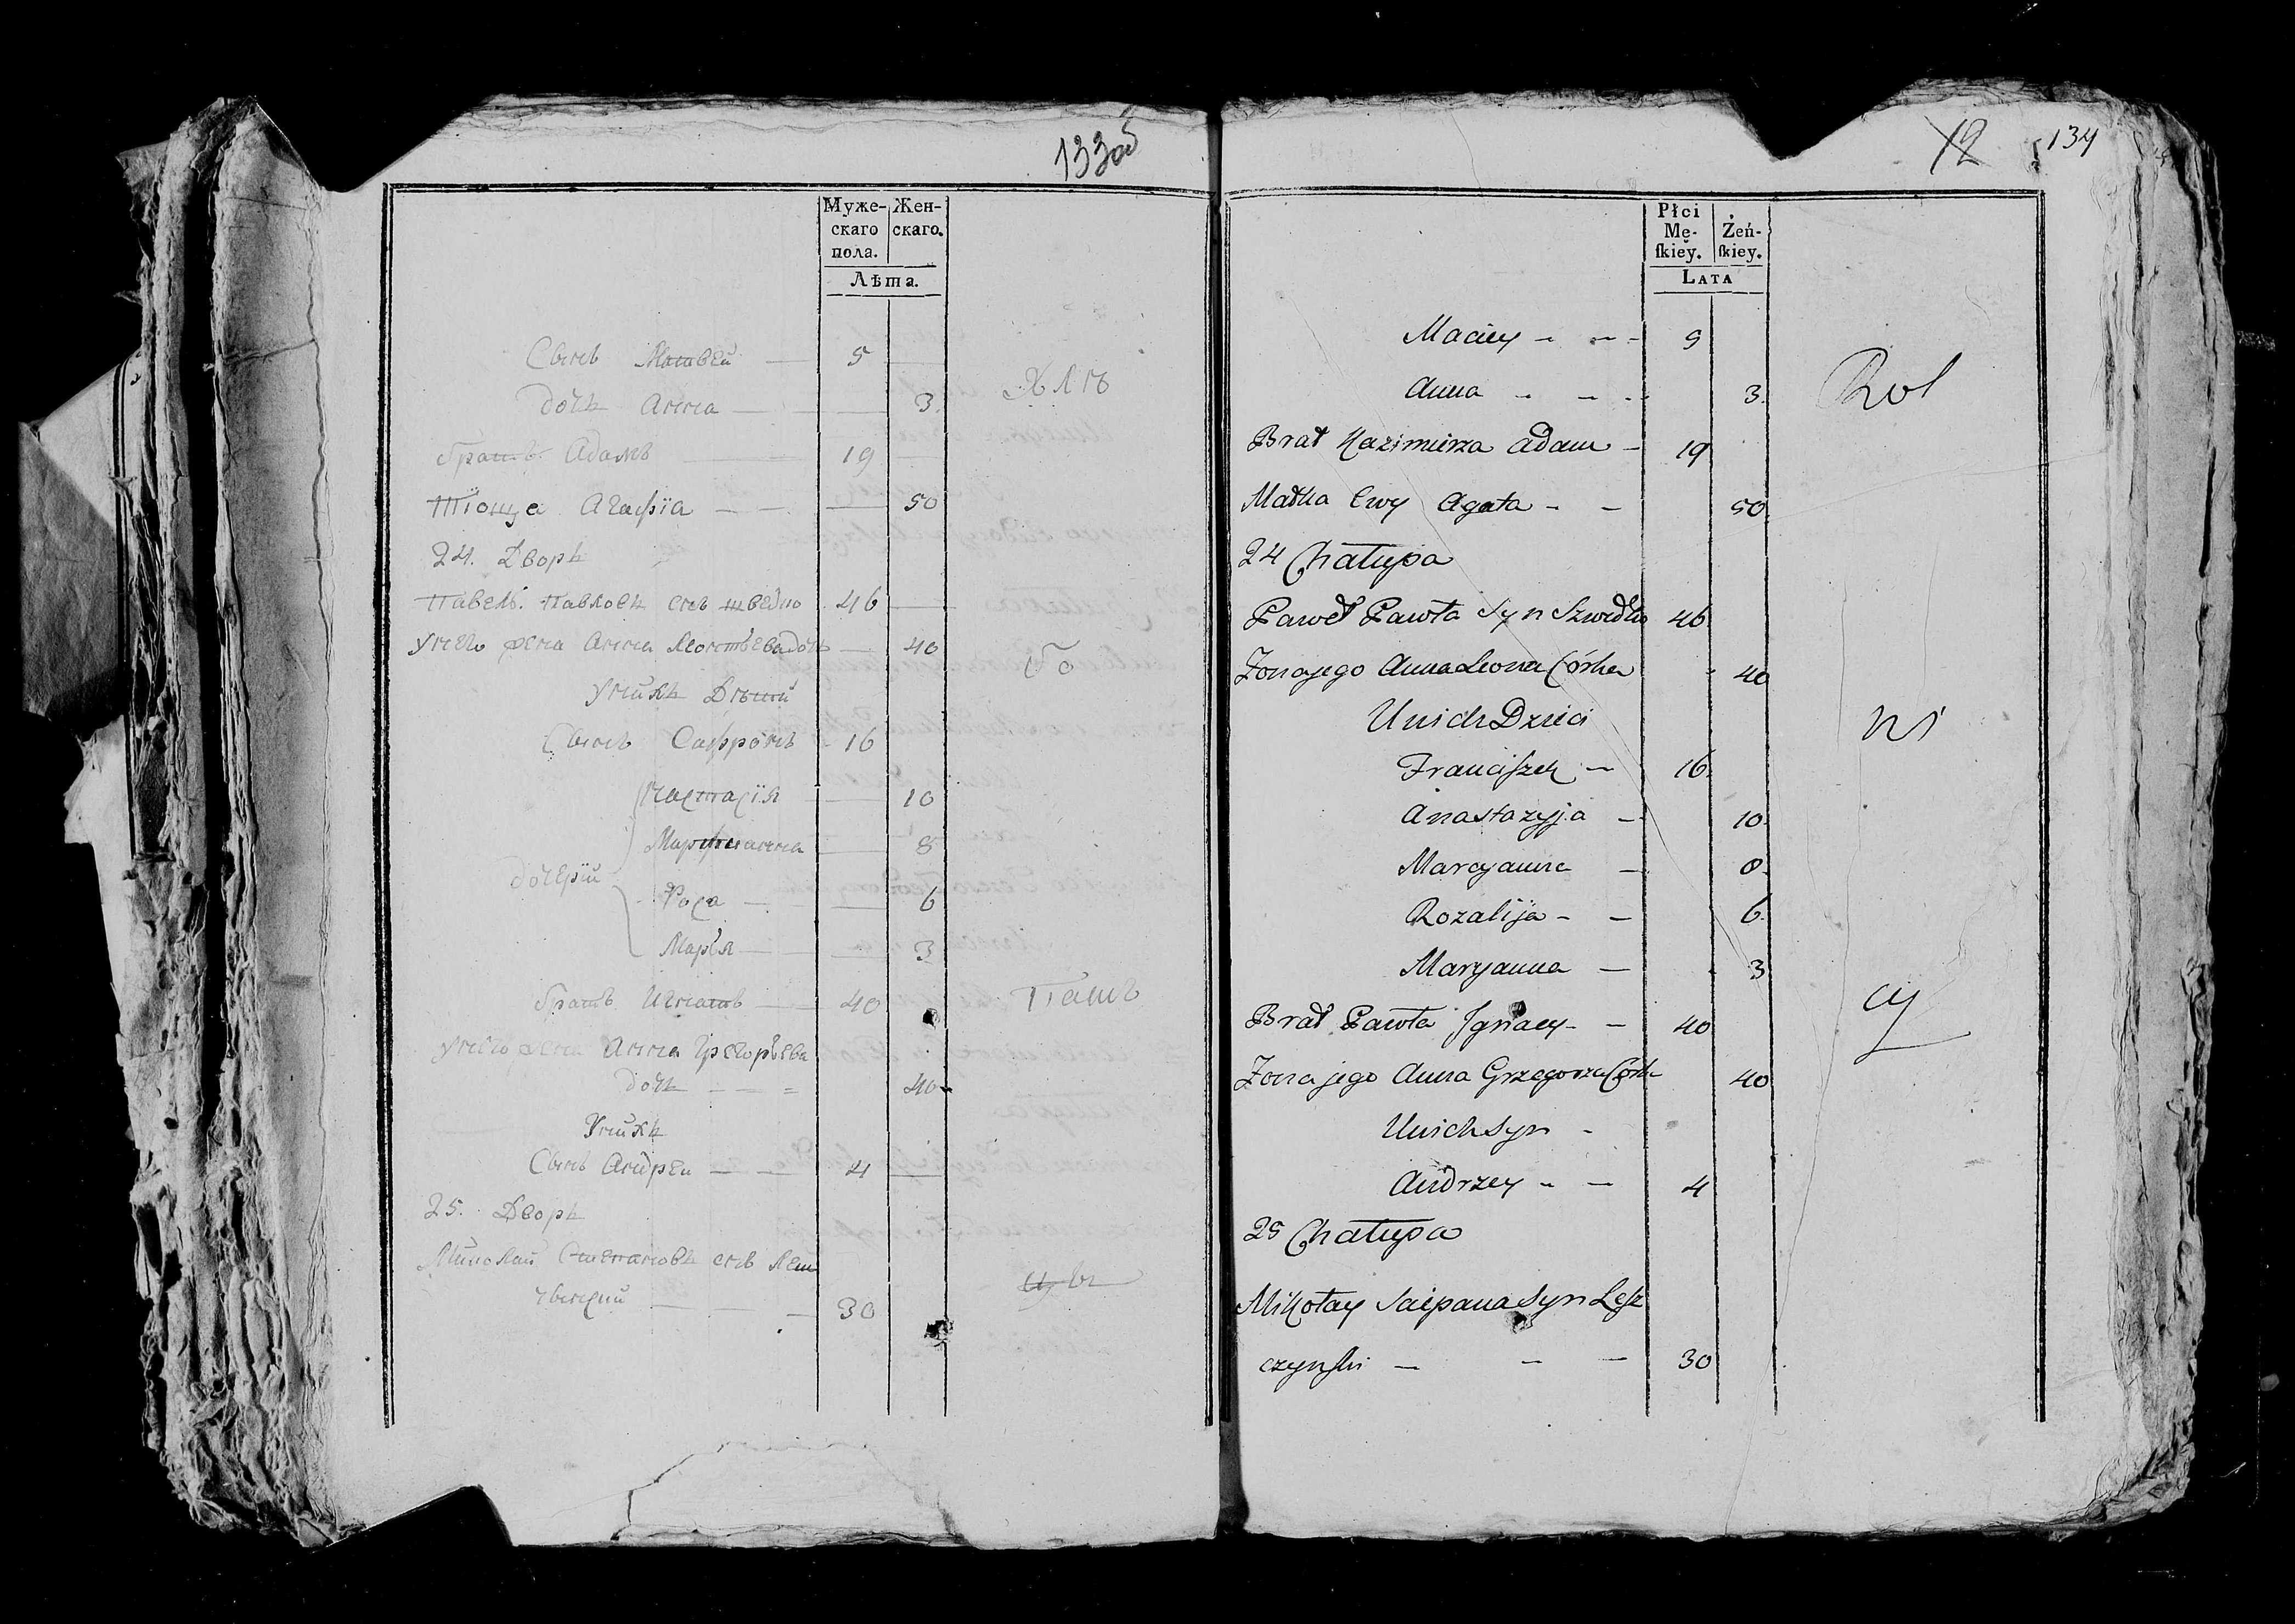 133об
Муже-
скаго
пола.
Жен-
скаго.
Лѣта.
Сынъ Матвей — 5
дочь Анна — 3
Хлѣ
братъ Адамъ — 19
тіоща Агафіа — 50
24. Дворъ
Павелъ Павловъ снъ шведко 46
У него жена Анна Леонтьева дочь — 40
бо
У нихъ Дѣти
Сынъ Сафронъ 16
Настасія — 10
Марціанна — 8
дочери
Роза — 6
Марья — 3
братъ Игнатъ — 40
Паш
У него жена Анна Грегорьева
дочь — 40
У нихъ
Сынъ Андреи — 4
25. Дворъ
Миколай Степановъ снъ Леш
цы
чынский — 30
12 134
Płci
Mę-
ſkiey.
Żeń-
ſkiey.
LATA
Maciey - - - 5
Anna - - - 3.
Rol
Brat Kazimierza Adam - 19
Matka Ewy Agata - - 50.
24 Chałupa
Paweł Pawła Syn Szwedko 46
Zona jego Anna Leona Córka 40
Unich Dzieci
ni
Franciſzek — 16.
Anastazyja — 10.
Marcyanna — 8.
Rozalija - — 6.
Maryanna — 3
Brat Pawła Ignacy - — 40
cy
Zona jego Anna Grzegorza Córka 40
Unich Syn -
Andrzey - — 4
25 Chałupa
Mikołay Sciepana Syn Leſz
czynſki — — — 30